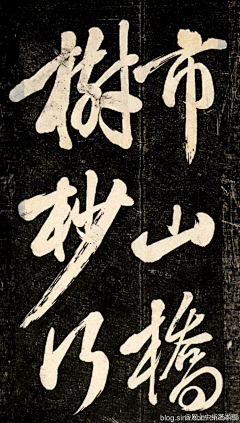 市山橋
樹杪行
blog.sina